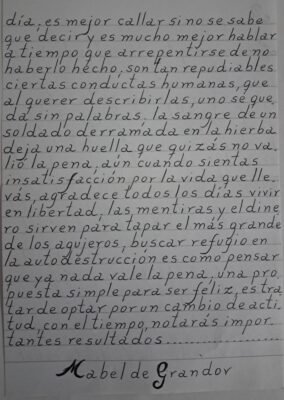 día, es mejor callar si no se sabe
que decir y es mucho mejor hablar
a tiempo que arrepentirse de no
haberlo hecho, son tan repudiables
ciertas conductas humanas, que
al querer describirlas, uno se que
da sin palabras, la sangre de un
soldado derramada en la hierba
deja una huella que quizás no va
lió la pena, aún cuando sientas
insatisfacción por la vida que lle
vás, agradece todos los días vivir
en libertad, las mentiras y el dine
ro sirven para tapar el más grande
de los agujeros, buscar refugio en
la autodestrucción es como pensar
que ya nada vale la pena, una pro
puesta simple para ser feliz, es tra
tar de optar por un cambio de acti
tud, con el tiempo, notarás impor
tantes resultados....................
Mabel de Grandov